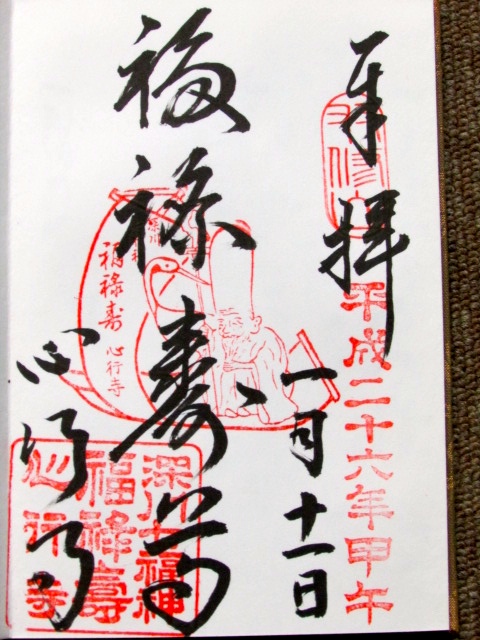 奉拝
平成二十六年甲午
一月十一日
福禄壽
心行寺
福禄寿
心行寺
深川七福神
福禄壽
心行寺